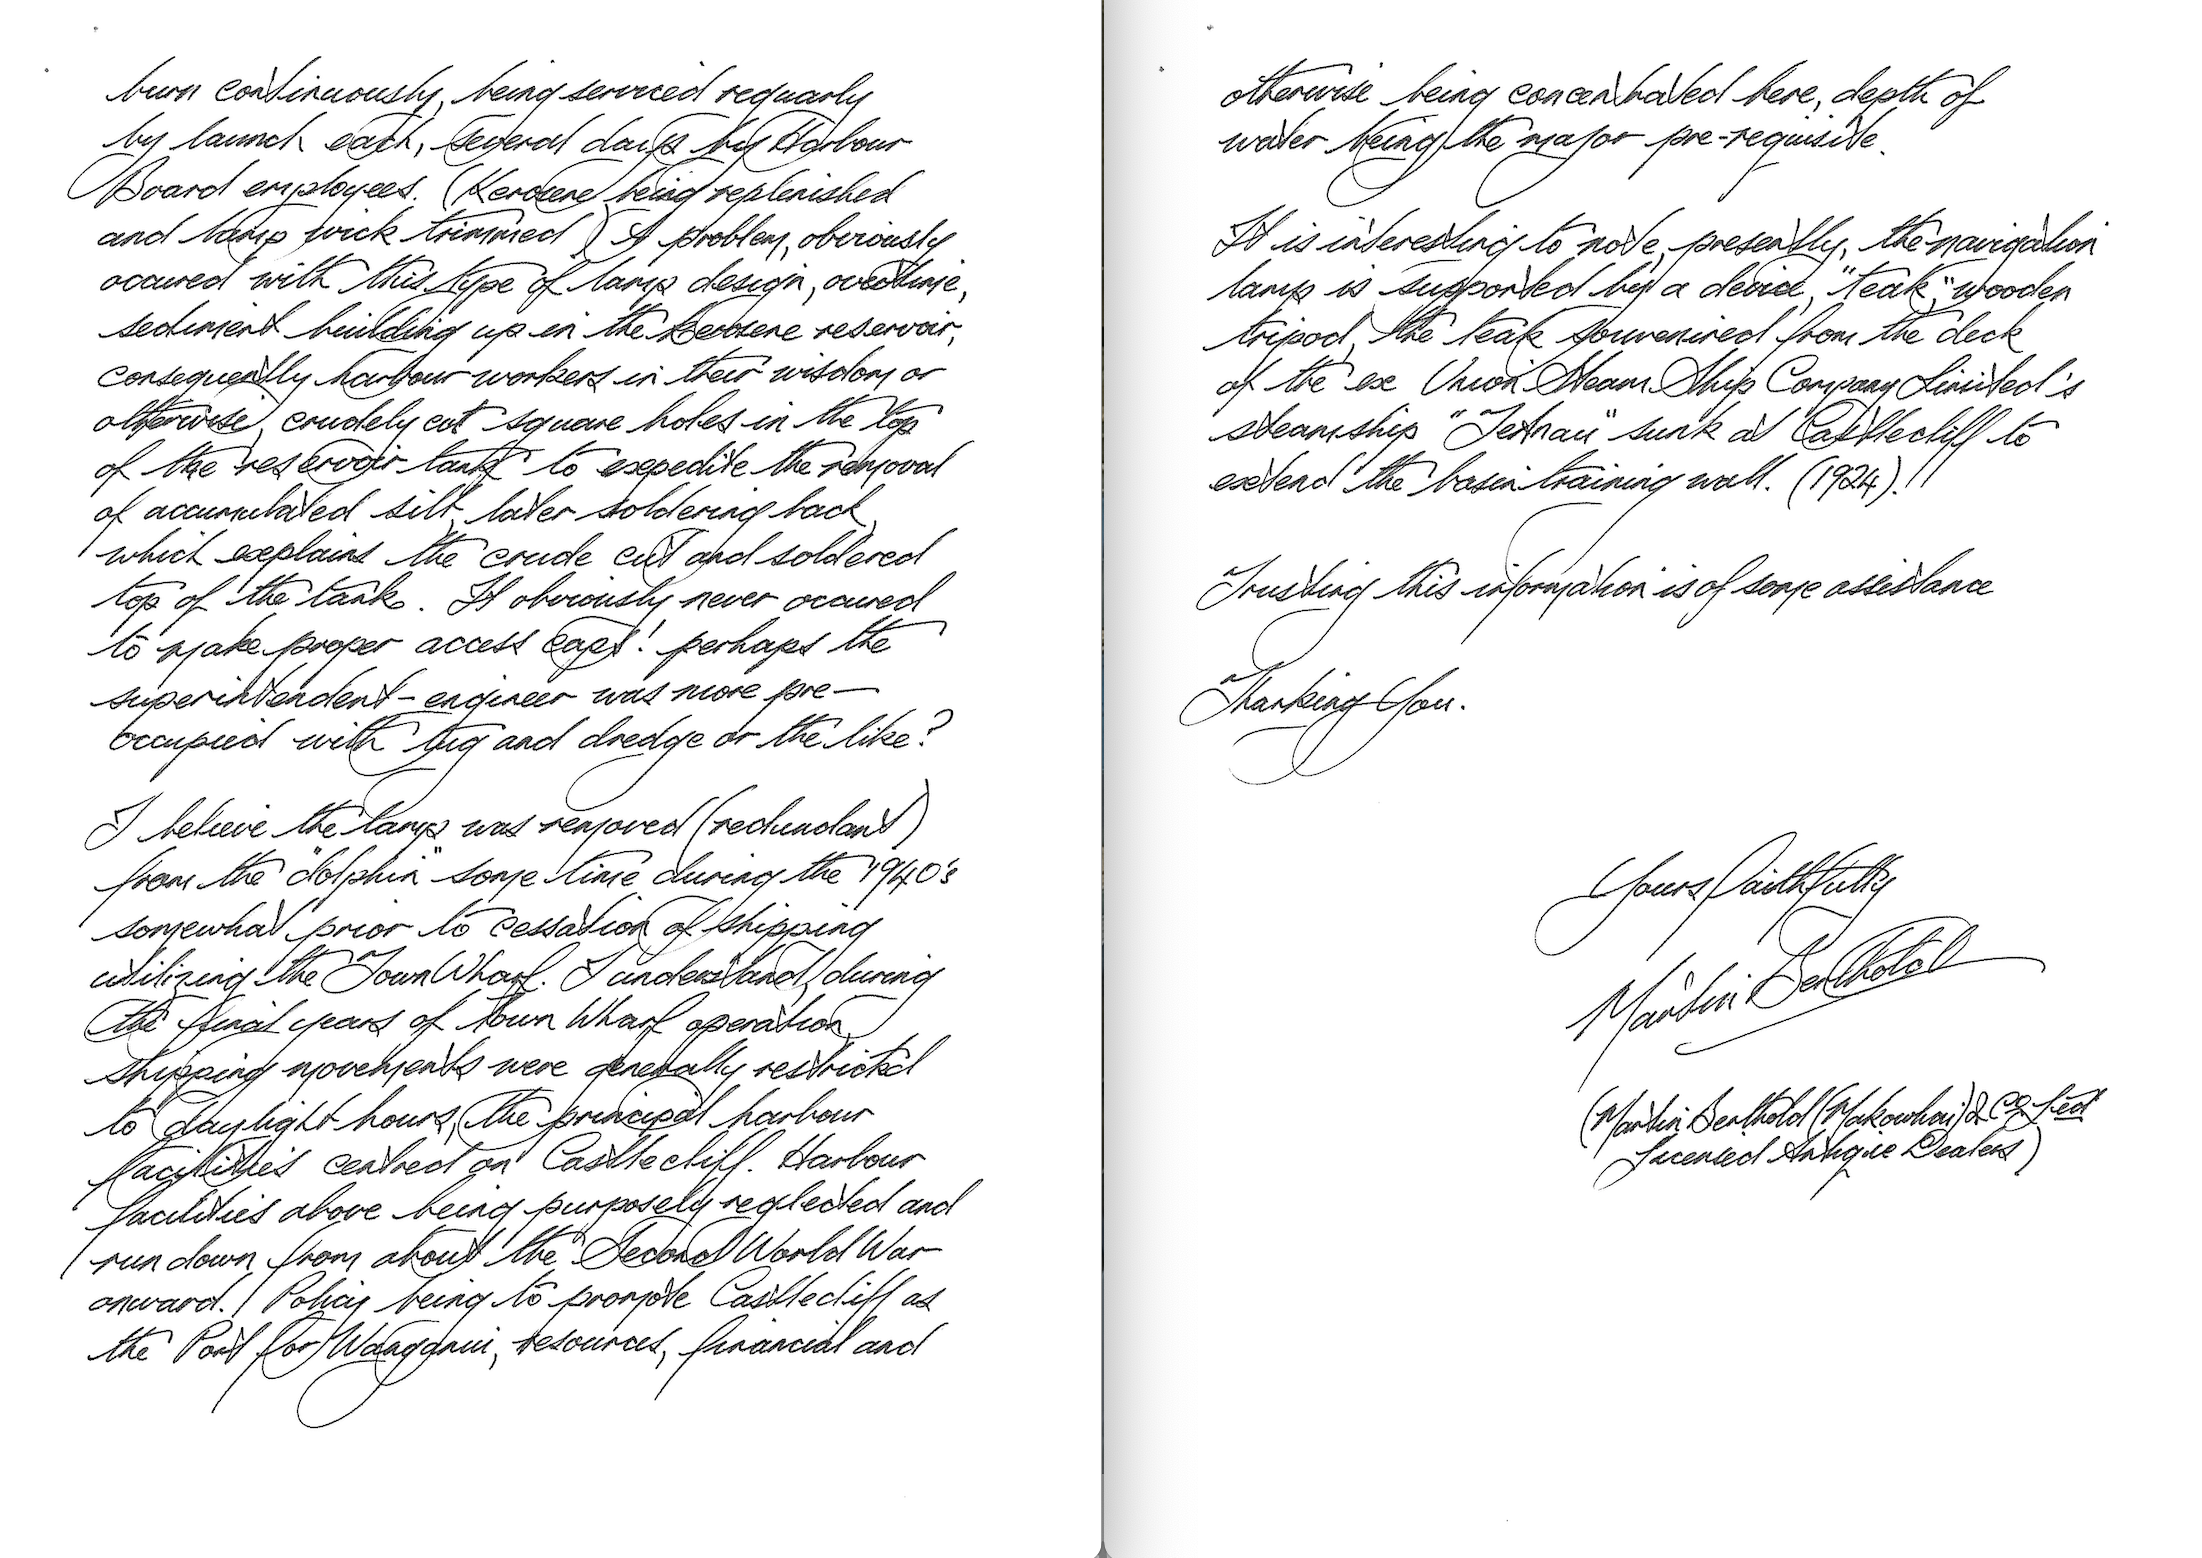 burn continuously, being serviced requarly
by launch each, several days by Harbour
Board employees. (Kerosene being replenished
and lamp wick trimmed) A problem, obviously
occured with this type of lamp design, overtime,
sediment building up in the kerosene reservoir,
consequently harbour workers in their wisdom or
otherwise, crudely cut square holes in the top
of the reservoir tank to expedite the removal
of accumulated silt, later soldering back,
which explains the crude cut and soldered
top of the tank. It obviously never occured
to make proper access caps! perhaps the
superintendent-engineer was more pre-
occupied with tug and dredge or the like?
I believe the lamp was removed (redundant)
from the "dolphin" some time during the 1940's
somewhat prior to cessation of shipping
utilizing the Town Wharf. I understand, during
the final years of Town Wharf operation,
shipping movements were generally restricted
to daylight hours, the principal harbour
facilities centred on Castlecliff. Harbour
facilities above being purposely neglected and
run down from about the Second World War
onward. Policy being to promote Castlecliff as
the Port for Wanganui, resources, financial and
otherwise being concentrated here, depth of
water being the major pre-requisite.
It is interesting to note, presently, the navigation
lamp is supported by a device, "teak" wooden
tripod, the teak souvenired from the deck
of the ex Union Steam Ship Company Limited's
steamship "Terhau" sunk at Castlecliff to
extend the basin training wall. (1924)!!
Trusting this information is of some assistance
Thanking You.
Yours Faithfully
Martin Berthold
(Martin Berthold (Makowhai) & Co Ltd
Licensed Antique Dealers)